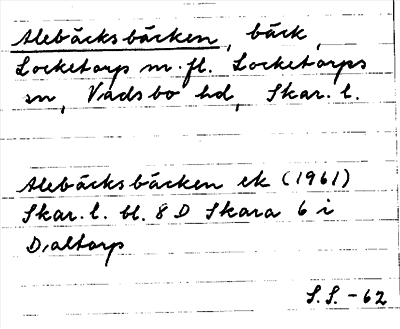 Alebäcksbäcken, bäck,
Locketorp m.fl. Locketorps
sn, Vadsbo hd, Skar. l.
Alebäcksbäcken ek (1961)
Skar. l. bl. 8 D Skara 6 i
D, altorp
S.S. -62